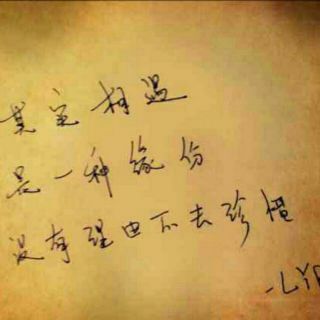 其实相遇
是一种缘份
没有理由不去珍惜